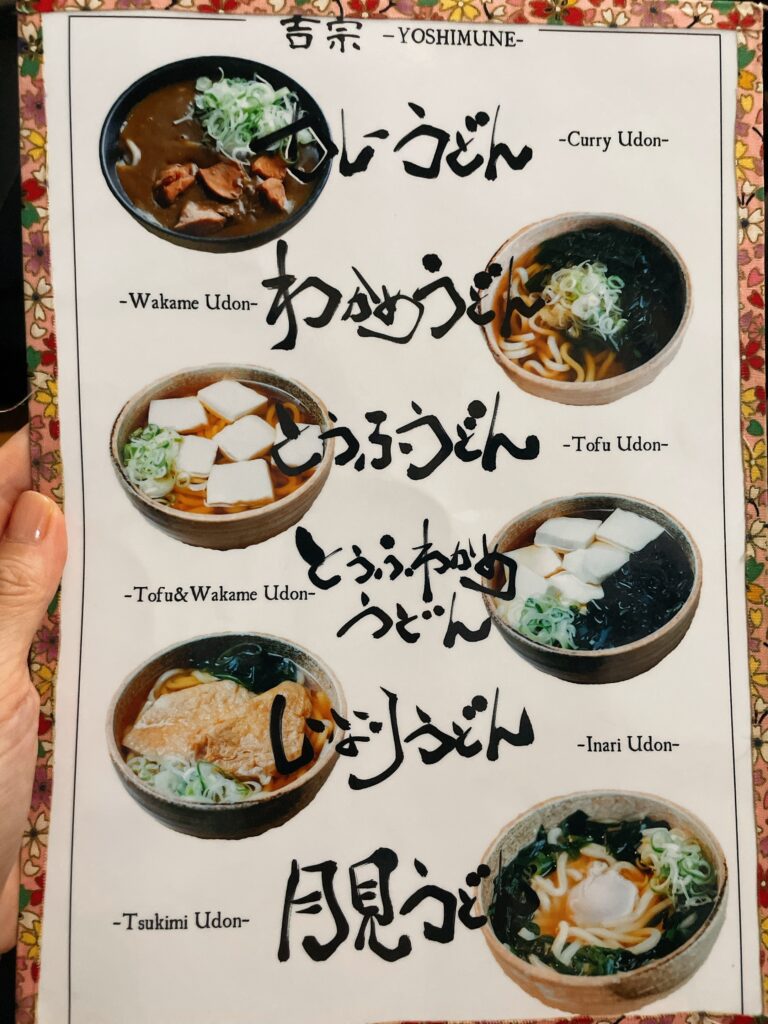 吉宗 -YOSHIMUNE-
うどん -Curry Udon-
-Wakame Udon- わかめうどん
とうふうどん -Tofu Udon-
-Tofu&Wakame Udon- とうふわかめ
うどん
いなりうどん -Inari Udon-
-Tsukimi Udon- 月見うど